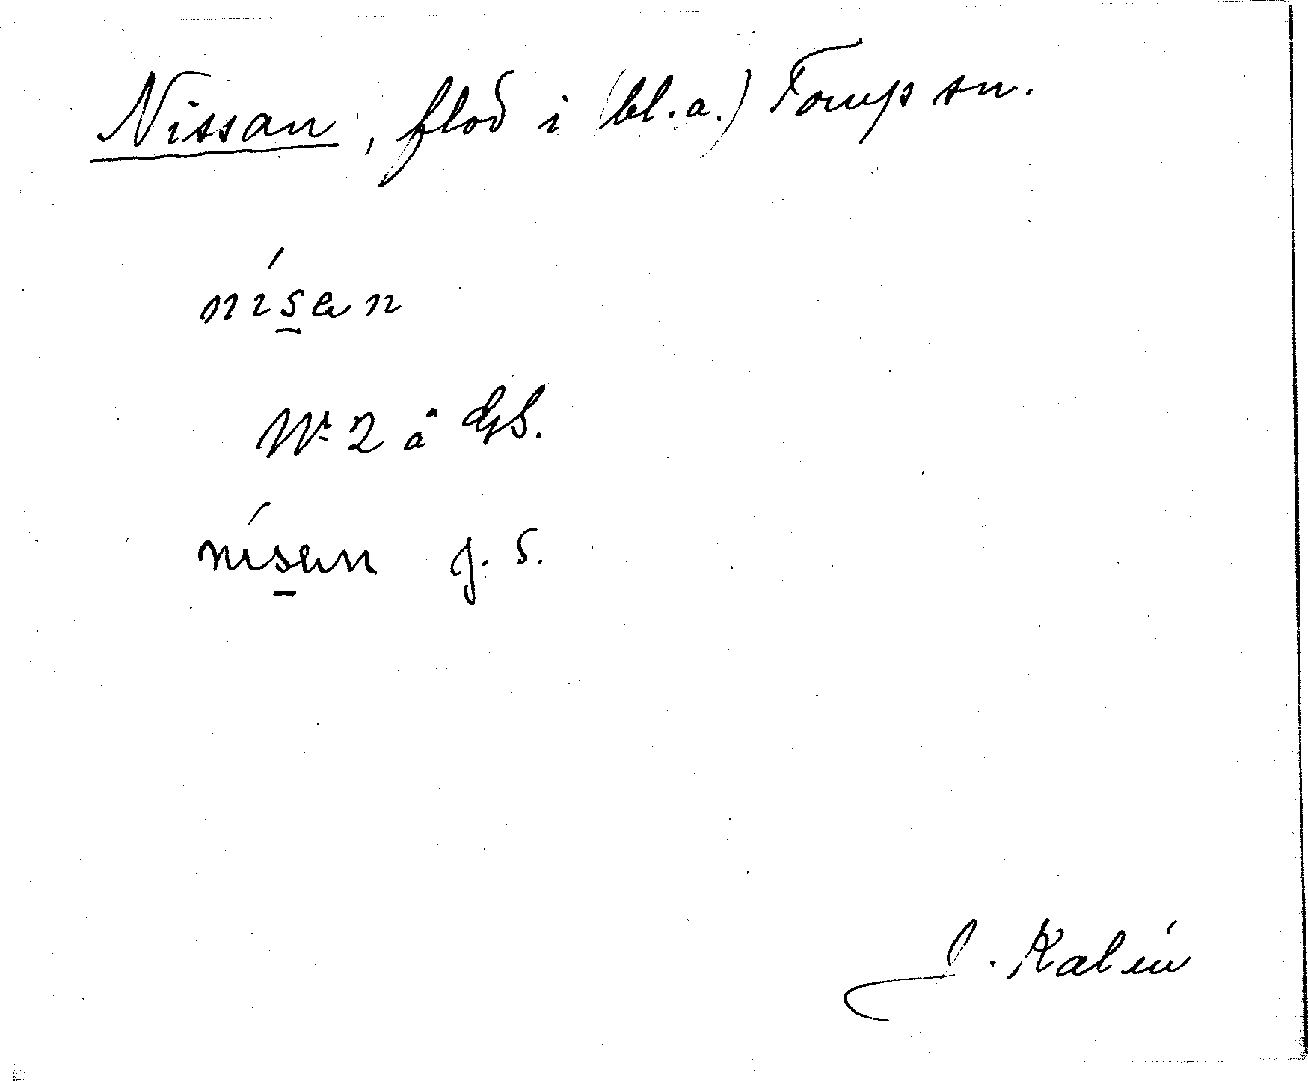 Nissan, flod i (bl.a.) Tomp sn.
nísan
Nr 2 å GS.
nísan g. s.
J. Kalén